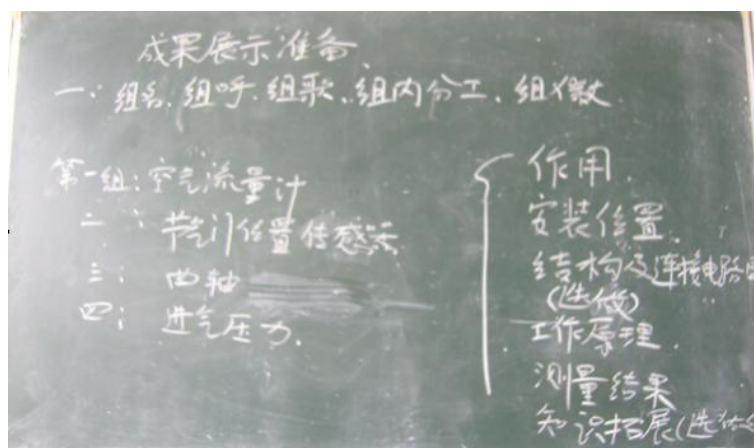 成果展示准备
一：组名、组呼、组歌、组内分工、组徽
第一组：空气流量计
二：节气门位置传感器
三：曲轴
四：进气压力
作用
安装位置
结构及连接电路
(选做)
工作原理
测量结果
知识拓展(选做